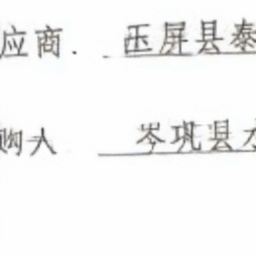 应商. 玉屏县泰
购人 岑巩县水